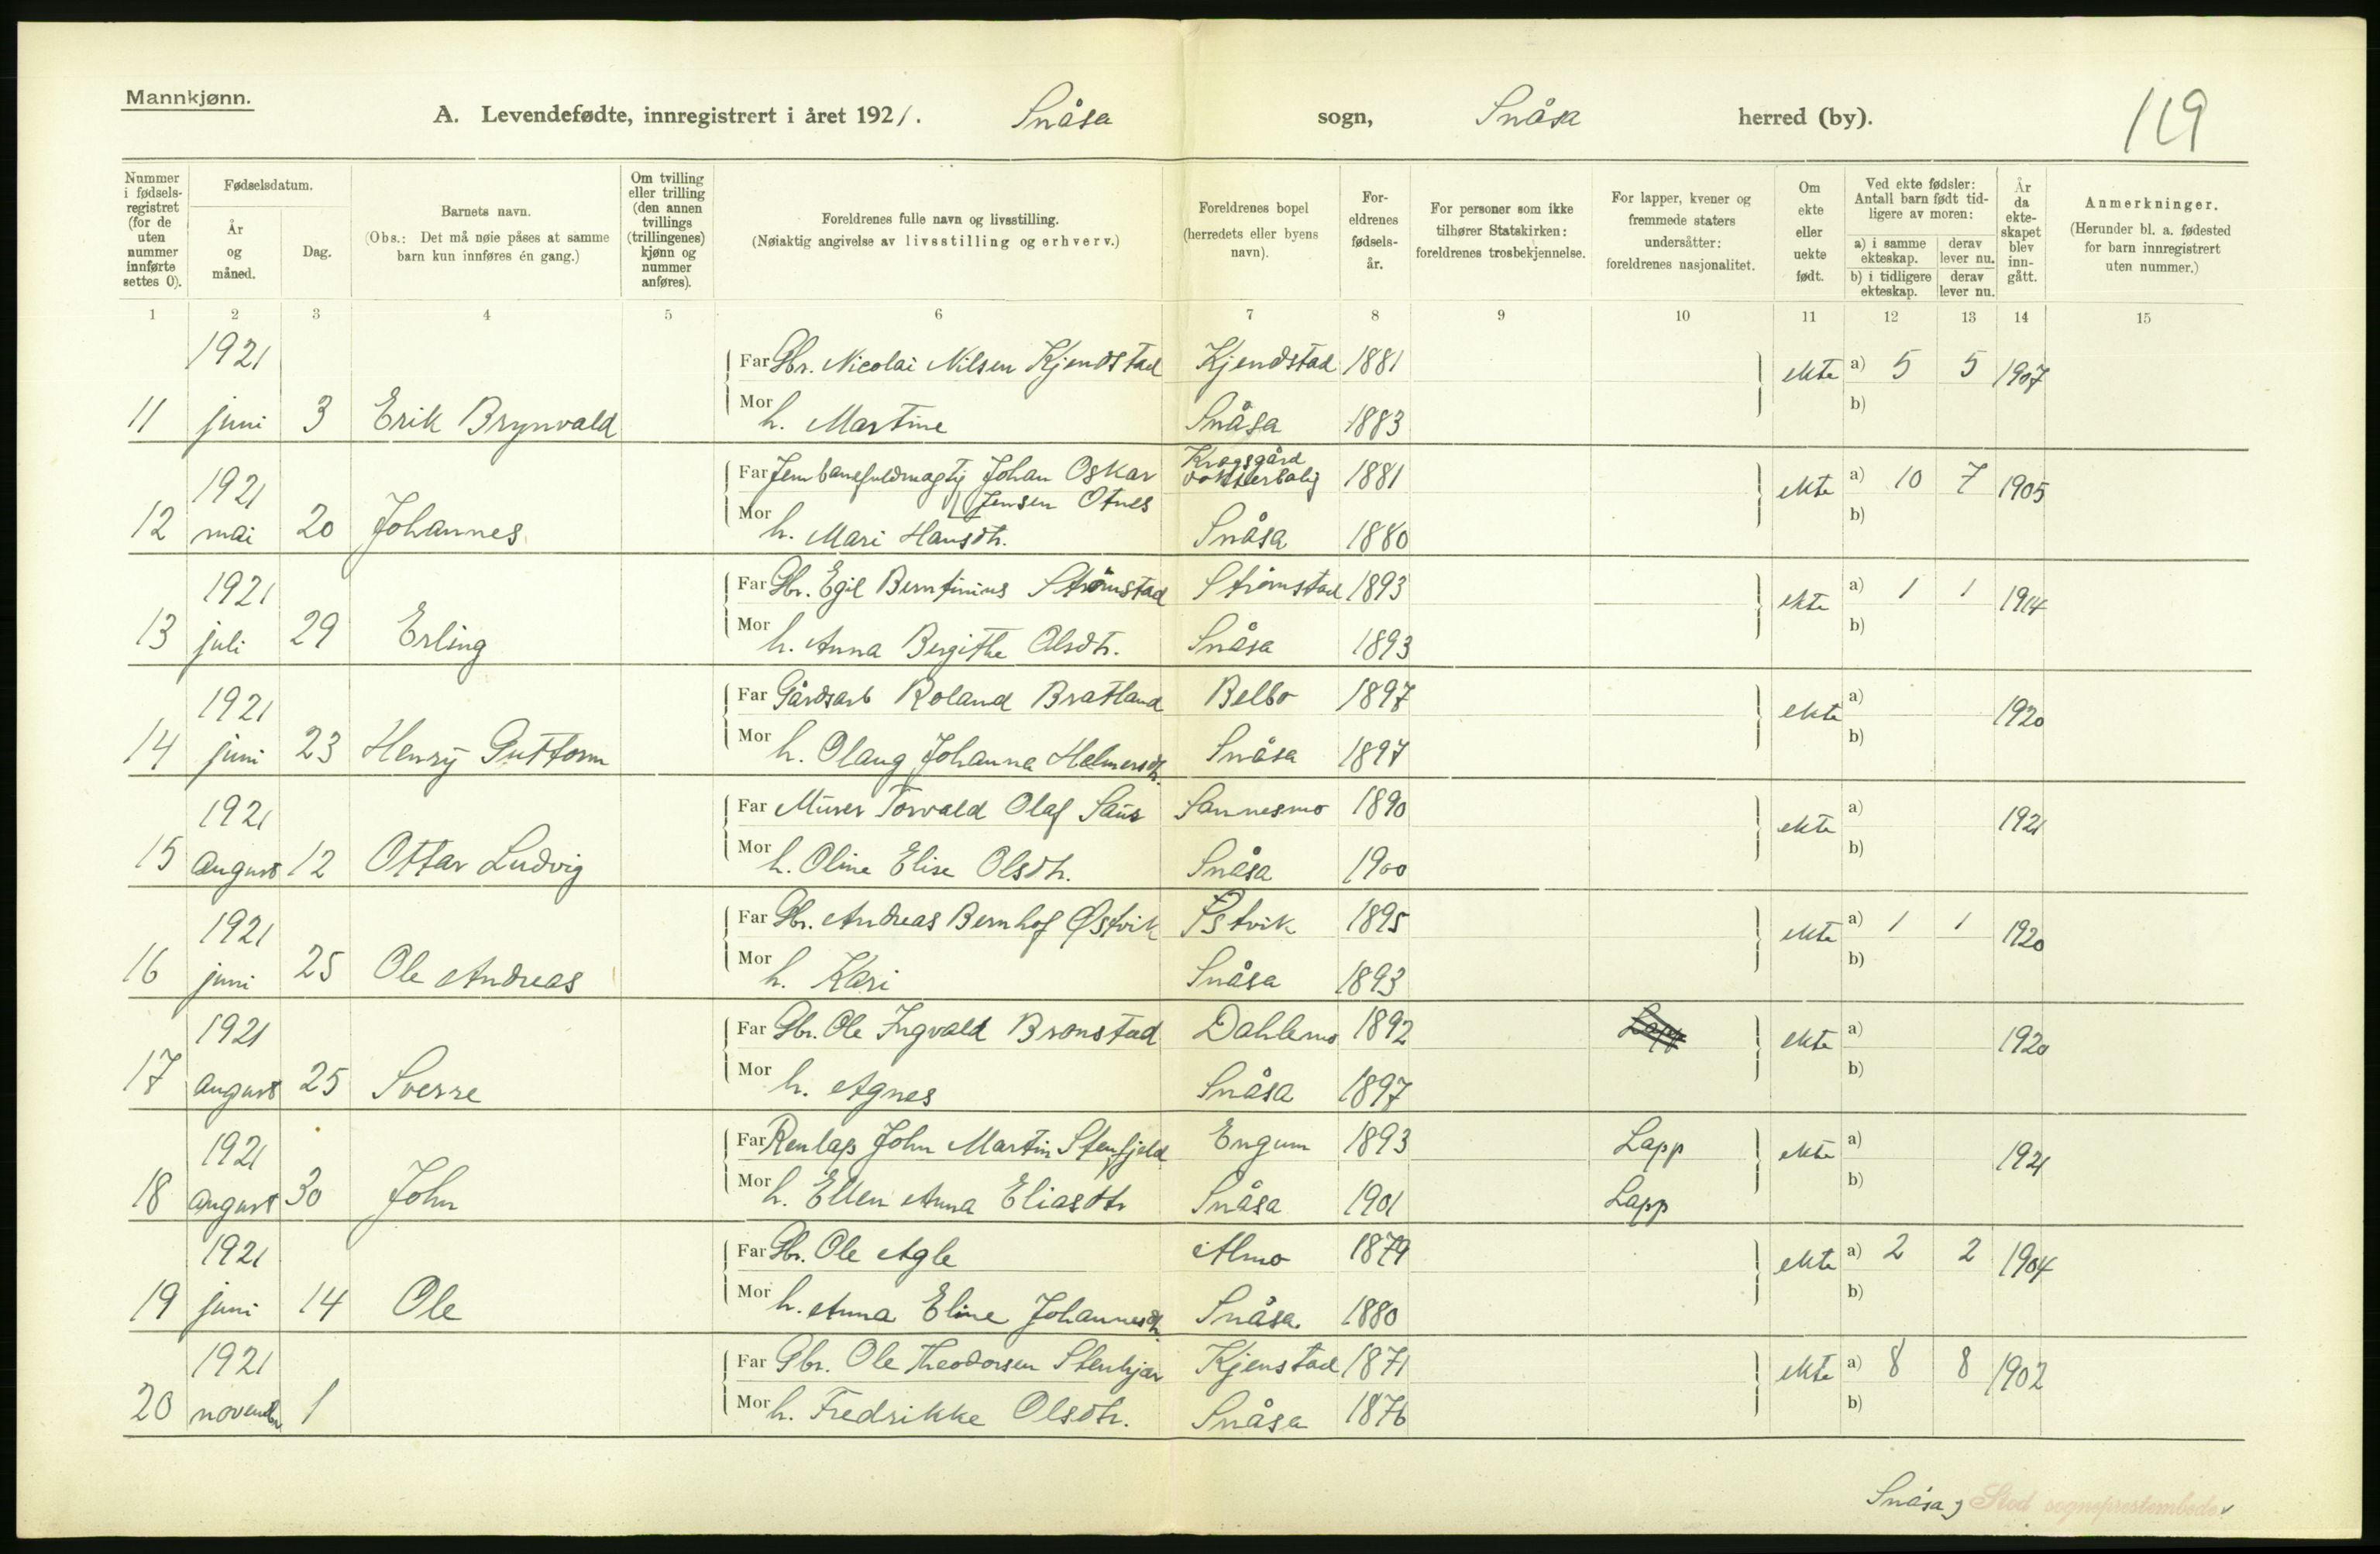 Mannkjønn.
A. Levendefødte, innregistrert i året 1921. Snåsa sogn, Snåsa herred (by). 119
Nummer i fødsels-registret (for de uten nummer innførte settes 0).
Fødselsdatum.
År og måned.
Dag.
Barnets navn.
(Obs.: Det må nøie påses at samme barn kun innføres én gang.)
Om tvilling eller trilling (den annen tvillings (trillingenes) kjønn og nummer anføres).
Foreldrenes fulle navn og livsstilling.
(Nøiaktig angivelse av livsstilling og erhverv.)
Foreldrenes bopel (herredets eller byens navn).
For-eldrenes fødsels-år.
For personer som ikke tilhører Statskirken: foreldrenes trosbekjennelse.
For lapper, kvener og fremmede staters undersåtter: foreldrenes nasjonalitet.
Om ekte eller uekte født.
Ved ekte fødsler: Antall barn født tid-ligere av moren:
a) i samme ekteskap. derav lever nu.
b) i tidligere ekteskap. derav lever nu.
År da ekte-skapet blev inn-gått.
Anmerkninger.
(Herunder bl. a. fødested for barn innregistrert uten nummer.)
1 2 3 4 5 6 7 8 9 10 11 12 13 14 15
1921 Far Gbr. Nicolai Nilsen Kjendstad Kjendstad 1881 ekte a) 5 5 1907
11 juni 3 Erik Brynvald Mor h. Martine Snåsa 1883 b)
1921 Far Jernbanefuldmagtig Johan Oskar Jensen Otnes Krogsgård 1881 ekte a) 10 7 1905
12 mai 20 Johannes Mor h. Mari Hansdtr. Snåsa 1880 b)
1921 Far Gbr. Egil Berntinius Strömstad Strömstad 1893 ekte a) 1 1 1914
13 juli 29 Erling Mor h. Anna Bergithe Olsdtr. Snåsa 1893 b)
1921 Far Gårdsarb Roland Bratland Belbo 1897 ekte a) 1920
14 juni 23 Henry Guttorm Mor h. Olaug Johanna Helmersdtr. Snåsa 1897 b)
1921 Far Murer Torvald Olaf Saur Sannesmo 1890 ekte a) 1921
15 august 12 Ottar Ludvig Mor h. Oline Elise Olsdtr. Snåsa 1900 b)
1921 Far Gbr. Andreas Bernhof Østvik Østvik 1895 ekte a) 1 1 1920
16 juni 25 Ole Andreas Mor h. Kari Snåsa 1893 b)
1921 Far Gbr. Ole Ingvald Bronstad Dahlemo 1892 Lapp ekte a) 1920
17 august 25 Sverre Mor h. Agnes Snåsa 1897 b)
1921 Far Renlap John Martin Stenfjeld Engum 1893 Lapp ekte a) 1921
18 august 30 John Mor h. Ellen Anna Eliasdtr Snåsa 1901 Lapp b)
1921 Far Gbr. Ole Agle Almo 1879 ekte a) 2 2 1904
19 juni 14 Ole Mor h. Anna Eline Johannesdtr. Snåsa 1880 b)
1921 Far Gbr. Ole Theodorsen Stenkjær Kjenstad 1871 ekte a) 8 8 1902
20 november 1 Mor h. Fredrikke Olsdtr. Snåsa 1876 b)
Snåsa, Stod sogneprestembede